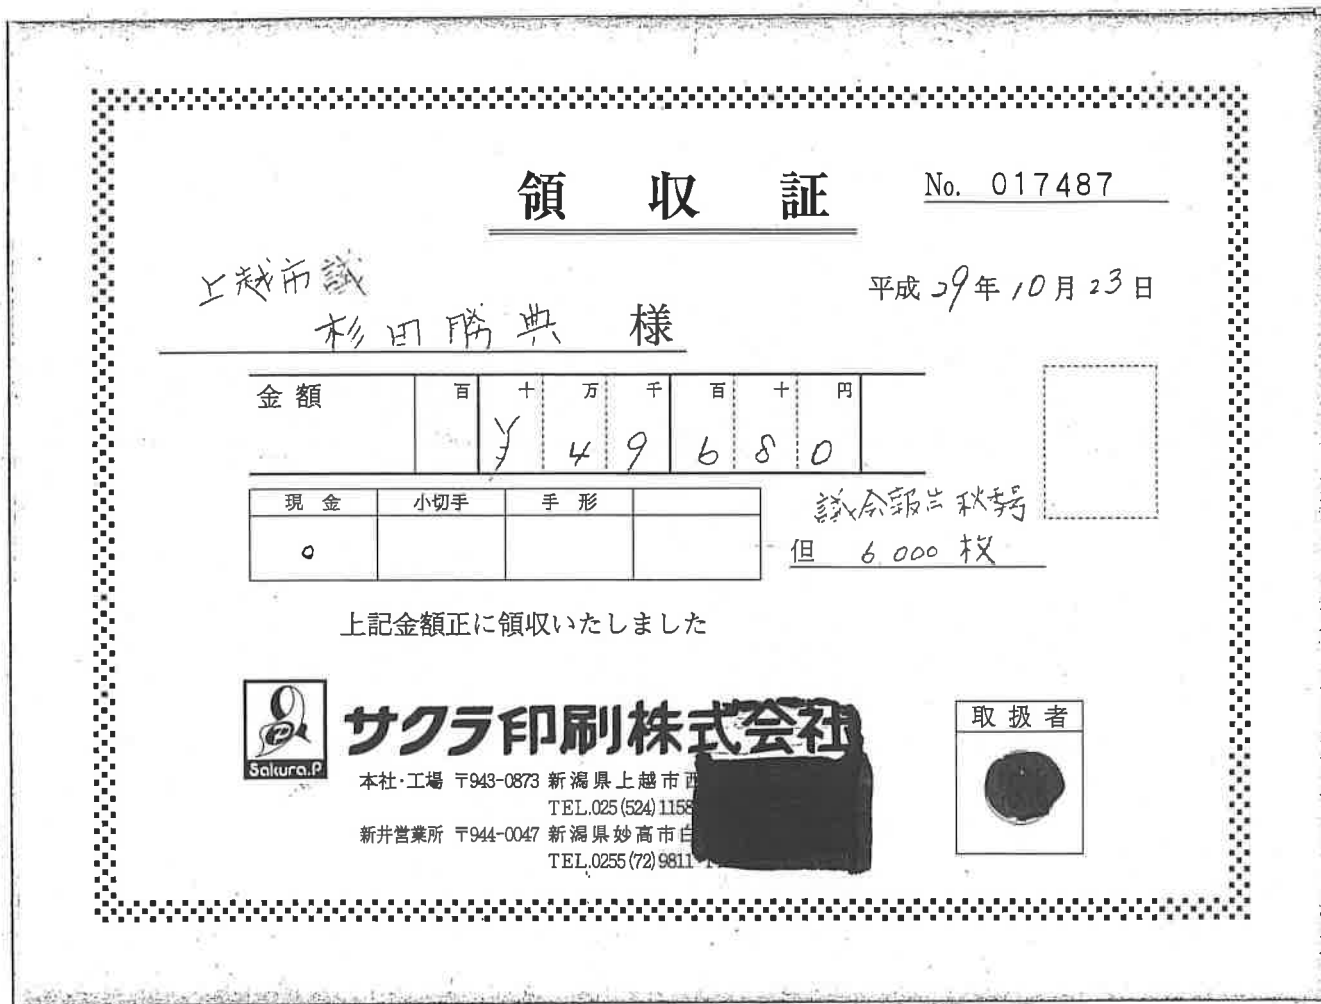 領収証
No. 017487
上越市議
平成29年10月23日
杉田勝典 様
金額 百 十 万 千 百 十 円
¥49680
現金 小切手 手形
議会報告秋季号
但 6000枚
上記金額正に領収いたしました
サクラ印刷株式会社
Sakura.P
取扱者
本社・工場 〒943-0873 新潟県上越市西
TEL.025(524)1158
新井営業所 〒944-0047 新潟県妙高市白
TEL.0255(72)9811